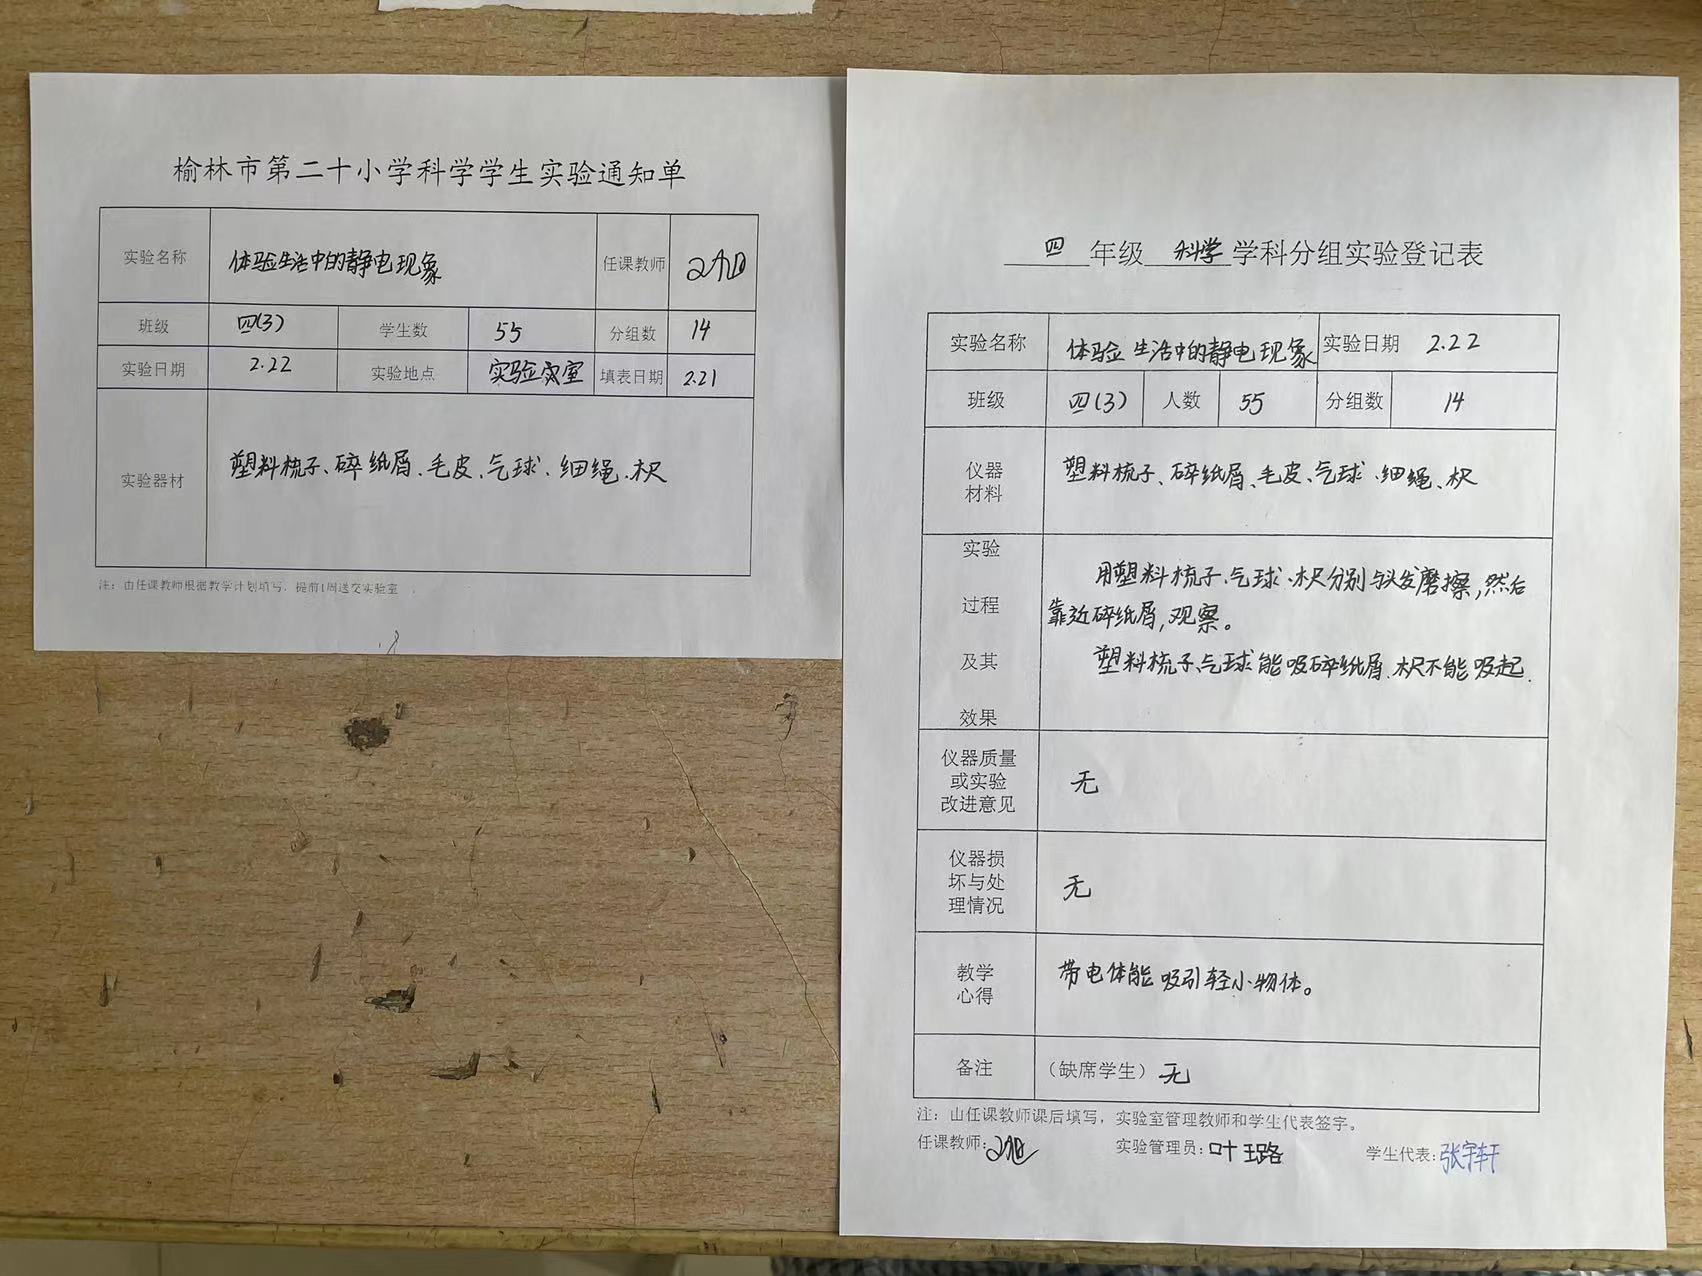 榆林市第二十小学科学学生实验通知单
实验名称 体验生活中的静电现象 任课教师
班级 四(3) 学生数 55 分组数 14
实验日期 2.22 实验地点 实验室 填表日期 2.21
实验器材 塑料梳子、碎纸屑、毛皮、气球、细绳、木尺
注：由任课教师根据教学计划填写，提前1周送交实验室
四 年级 科学 学科分组实验登记表
实验名称 体验生活中的静电现象 实验日期 2.22
班级 四(3) 人数 55 分组数 14
仪器
材料
塑料梳子、碎纸屑、毛皮、气球、细绳、木尺
实验
过程
及其
效果
用塑料梳子、气球、木尺分别与头发磨擦,然后
靠近碎纸屑,观察。
塑料梳子、气球能吸碎纸屑、木尺不能吸起.
仪器质量
或实验
改进意见
无
仪器损
坏与处
理情况
无
教学
心得
带电体能吸引轻小物体。
备注 （缺席学生）无
注：由任课教师课后填写，实验室管理教师和学生代表签字。
任课教师: 实验管理员:叶璐 学生代表:张宇轩